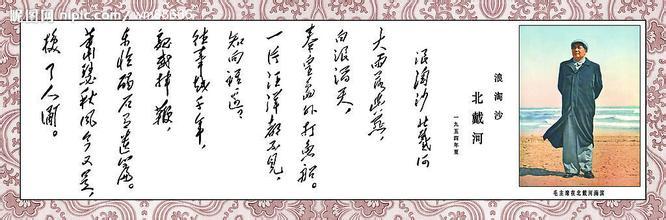 浪淘沙
北戴河
一九五四年夏
浪淘沙 北戴河
大雨落幽燕,
白浪滔天,
秦皇岛外打鱼船。
一片汪洋都不见,
知向谁边?
往事越千年,
魏武挥鞭,
东临碣石有遗篇。
萧瑟秋风今又是,
换了人间。
毛主席在北戴河海滨
昵图网 nipic.com